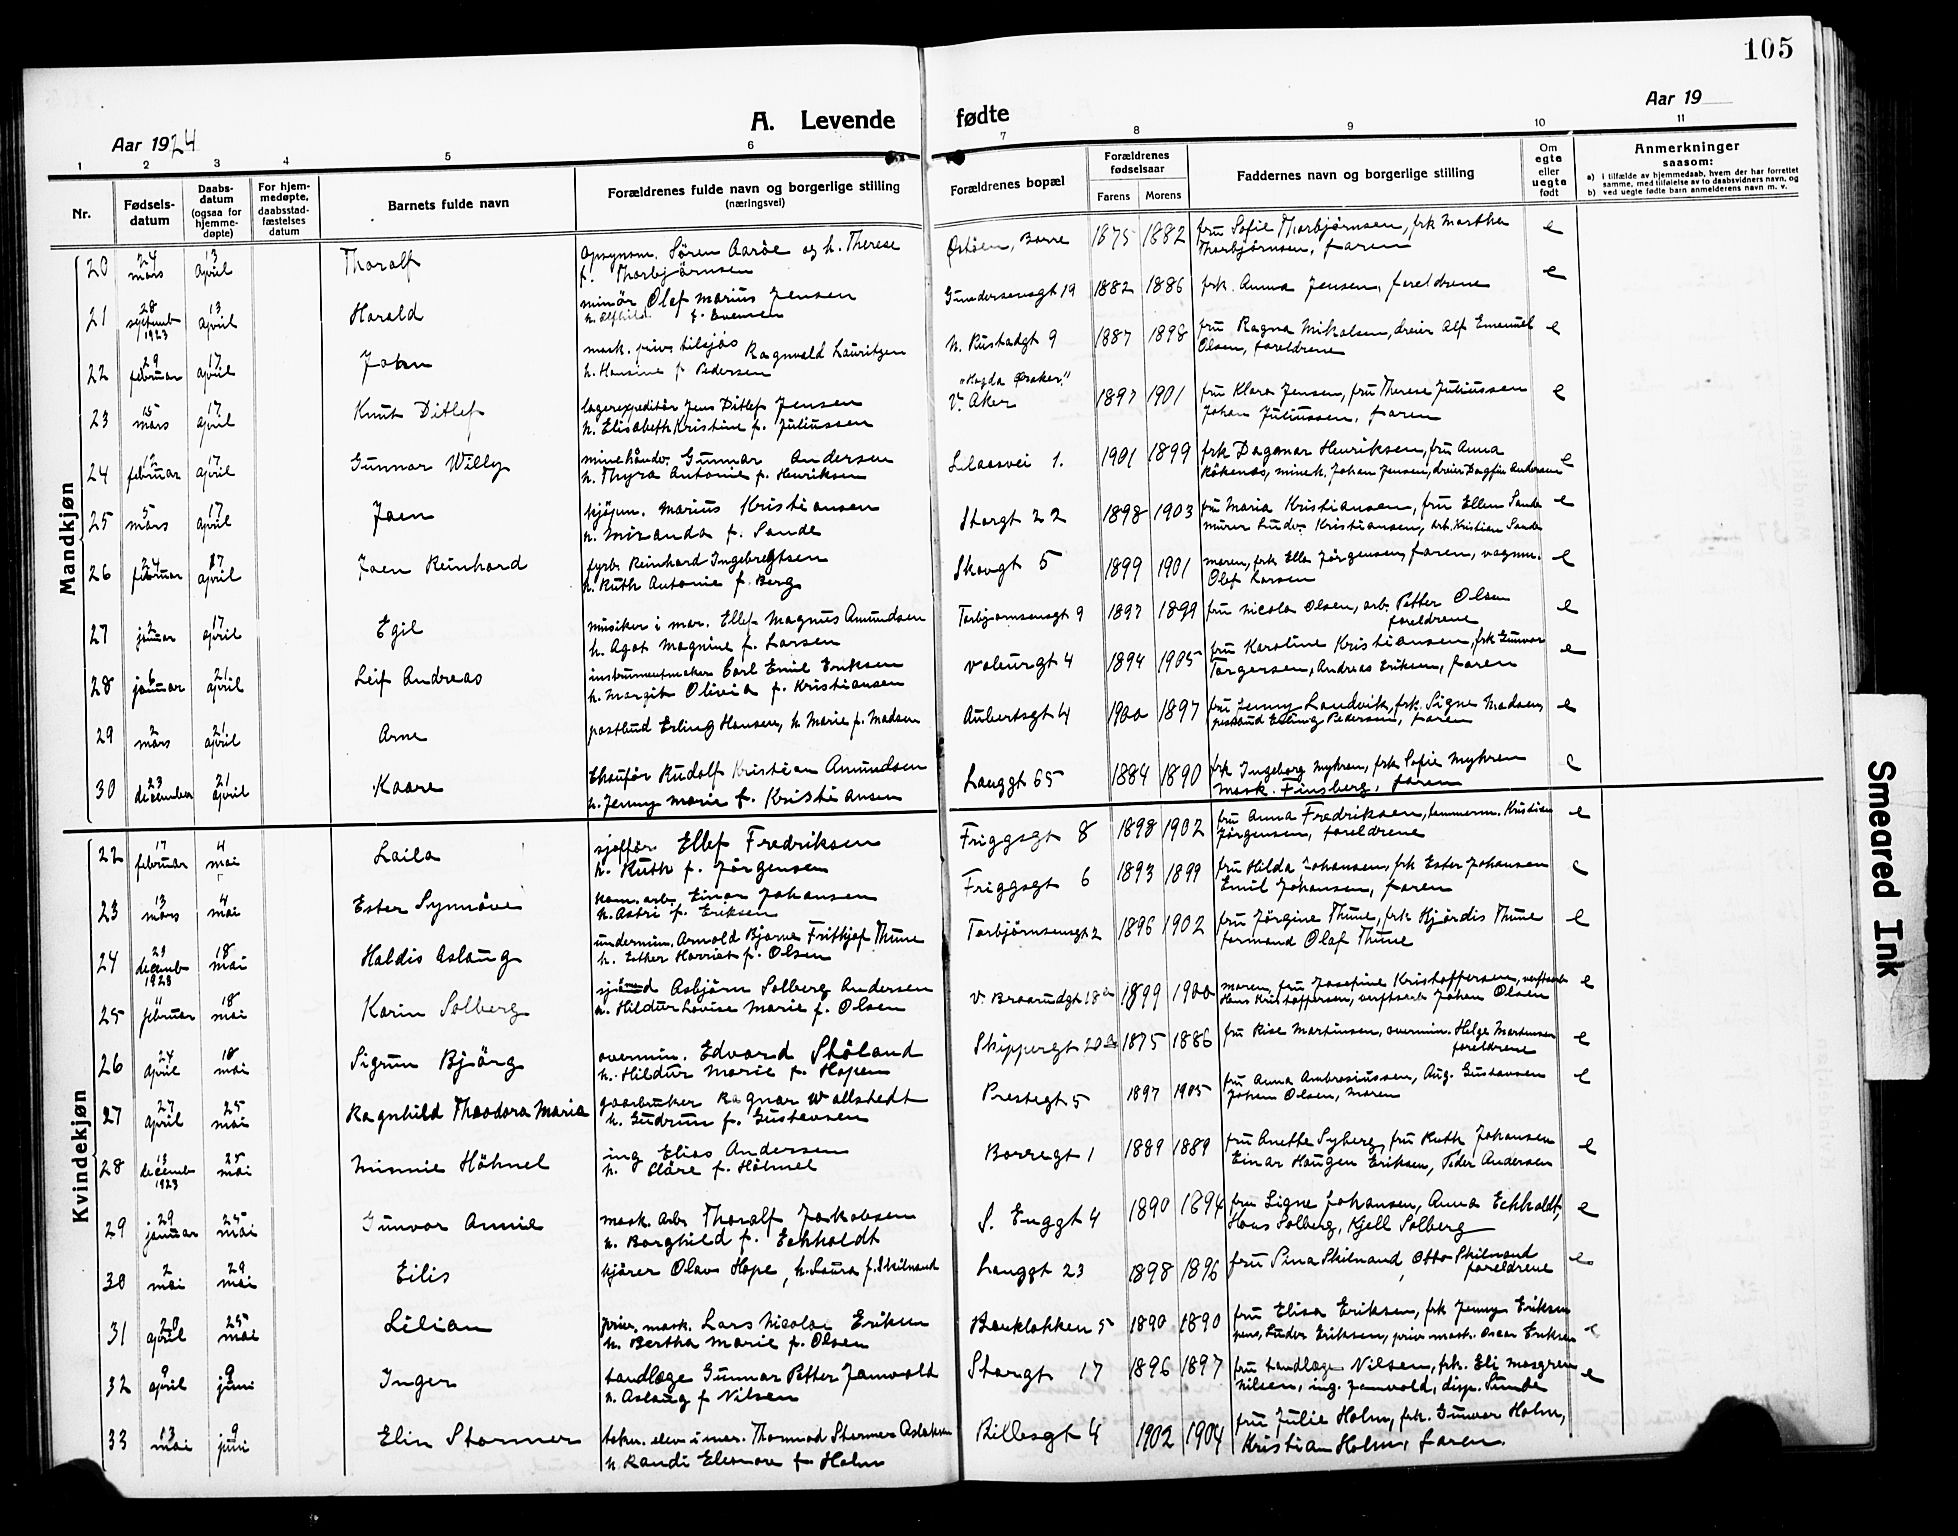 105
Aar 1924
A. Levende fødte
Aar 19
1 2 3 4 5 6 7 8 9 10 11
Nr.
Fødsels-
datum
Daabs-
datum
(ogsaa for
hjemme-
døpte)
For hjem-
medøpte,
daabsstad-
fæstelses
datum
Barnets fulde navn
Forældrenes fulde navn og borgerlige stilling
(næringsvei)
Forældrenes bopæl
Forældrenes
fødselsaar
Farens Morens
Faddernes navn og borgerlige stilling
Om
egte
eller
uegte
født
Anmerkninger
saasom:
a) i tilfælde av hjemmedaab, hvem der har forrettet
samme, med tilføielse av to daabsvidners navn, og
b) ved uegte fødte barn anmelderens navn m. v.
Mandkjøn
20 24 mars 13 april Thoralf
opsynsm. Sören Aaröe og h. Therese
f. Thorbjörnsen
Östöen, Borre 1875 1882
fru Sofie Thorbjørnsen, frk Marthea
Thorbjørnsen, faren e
21 28 septemb 1923 13 april Harald
minör Olef Marius Jensen
h. Alfhild f. Evensen
Gundersensgt 19 1882 1886
frk. Anna Jensen, foreldrene e
22 29 februar 17 april Johan
mask. privs tilsjös Ragnvald Lauritzen
h. Hansine f Pedersen
N. Rustadgt 9 1887 1898
fru Ragna Mikalsen, dreier Alf Emanuel
Olsen, foreldrene e
23 15 mars 17 april Knut Ditlef
lagerexpeditör Jens Ditlef Jensen
h. Elisabeth Kristine f. Juliussen
V. Aker 1897 1901
fru Klara Jensen, fru Therese Juliussen
Johan Juliussen, faren e
24 12 februar 17 april Gunnar Willy
minehåndv. Gunnar Andersen
h. Thyra Antonie f. Henriksen
1. 1901 1899
frk Dagmar Henriksen, fru Anna
Rökenes, minek. Johan Jensen, dreier Dagfin Andersen e
25 5 mars 17 april Joen
kjöpm. Marius Kristiansen
h. Miranda f. Sande
Storgt 22 1898 1903
fru Maria Kristiansen, fru Ellen Sande
murer Ludv. Kristiansen, arb. Kristian Sande e
26 24 februar 17 april Joen Reinhard
fyrb. Reinhard Ingebregtsen
h. Ruth Antonie f. Berg
Skovgt 5 1899 1901
moren, frk Ella Jörgensen, faren, vognm.
Olef Larsen e
27 2 januar 17 april Egil
musiker i mar. Ellef Magnus Amundsen
h. Agot Magnine f. Larsen
Torbjörnsensgt 9 1897 1899
fru Nicola Olsen, arb. Petter Olsen
foreldrene e
28 6 januar 21 april Leif Andreas
instrumentmaker Carl Emil Eriksen
h. Margit Olivia f. Kristiansen
Voldurgt 4 1894 1905
fru Karoline Kristiansen, frk Gunvor
Torgersen, Andreas Eriksen, faren e
29 2 mars 21 april Arne
postbud Erling Hansen, h Marie f. Madsen
Aubertsgt 4 1900 1897
fru Jenny Landvik, frk. Signe Madsen,
postbud Erling Pedersen, faren e
30 23 december 21 april Kaare
Chauför Rudolf Kristian Amundsen
h. Jenny Marie f. Kristiansen
Langgt 65 1884 1890
frk Ingeborg Myhren, frk Sofie Myhren
mask. Finsberg, faren e
Kvindekjøn
22 17 februar 4 mai Laila
sjofför Ellef Fredriksen
h. Ruth f. Jörgensen
Friggsgt 8 1898 1902
fru Anna Fredriksen, tømmerm. Kristian
Jörgensen, foreldrene e
23 13 mars 4 mai Ester Synnöve
kom. arb. Einar Johansen
h. Astri f. Eriksen
Friggsgt 6 1893 1899
fru Hilda Johansen, frk Ester Johansen
Emil Johansen, faren e
24 29 decemb 1923 18 mai Haldis Aslaug
underminr. Arnold Bjarne Fritkjof Thune
h. Esther Harriet f. Olsen
Torbjørnsensgt 2 1896 1902
fru Jörgine Thune, frk Hjördis Thune
formand Olaf Thune e
25 11 februar 18 mai Karin Solberg
sjömand Asbjörn Solberg Andersen
h. Hildur Lovise Marie f. Olsen
V. Braarudgt 18 a 1899 1900
moren, fru Josefine Kristoffersen, verftsarb
Hans Kristoffersen, verftsarb Johan Olsen e
26 24 april 18 mai Sigrun Bjørg
overmin. Edvard Stöland
h. Hildur Marie f. Hopen
Skippergt 20 a 1875 1886
fru Rise Martinsen, overmin. Helge Martinsen
foreldrene e
27 27 april 25 mai Ragnhild Theodora Maria
gaardbruker Ragnar Wallstedt
h. Gudrun f. Gustavsen
Prestegt 5 1897 1905
fru Anna Ambrosiussen, Aug. Gustavsen
Johan Olsen, moren e
28 13 decemb 1923 25 mai Minnie Höhnel
ing Elias Andersen
h. Cläre f. Höhnel
Borregt 1 1889 1889
fru Anethe Syberg, fru Ruth Johansen
Einar Haugen Eriksen, Peder Andersen e
29 29 januar 25 mai Gunvor Annie
mask. Arb. Thoralf Jackobsen
h. Borghild f. Eckholdt
S. Enggt 4 1890 1894
fru Signe Johansen, Anna Eckholdt,
Hans Solberg, Kjell Solberg e
30 2 mai 29 mai Eilis
kjörer Olav Hope, h. Laura f. Skilnand
Langgt 23 1898 1896
fru Sina Skilnand, Otto Skilnand
foreldrene e
31 28 april 25 mai Lilian
priv. mask. Lars Nicolai Eriksen
h. Bertha Marie f. Olsen
Bankløkken 5 1890 1890
fru Elisa Eriksen, frk Jenny Eriksen
pens. Ludv Eriksen, priv mask. Oscar Eriksen e
32 9 april 9 juni Inger
tandlæge Gunnar Petter Jamvold
h. Aslaug f Nilsen
Storgt 17 1896 1897
fru tandlæge Nilsen, frk. Eli Mosgren
Nilsen, ing. Jamvold, disp. Sunde e
33 13 mai 9 juni Elin Stormer
tekn. elev i mar. Thormod Stormer Aslaksen
h. Randi Eleonore f. Holm
Billesgt 4 1902 1904
fru Julie Holm, frk. Gunvor Holm,
Kristian Holm, faren.
Smeared Ink